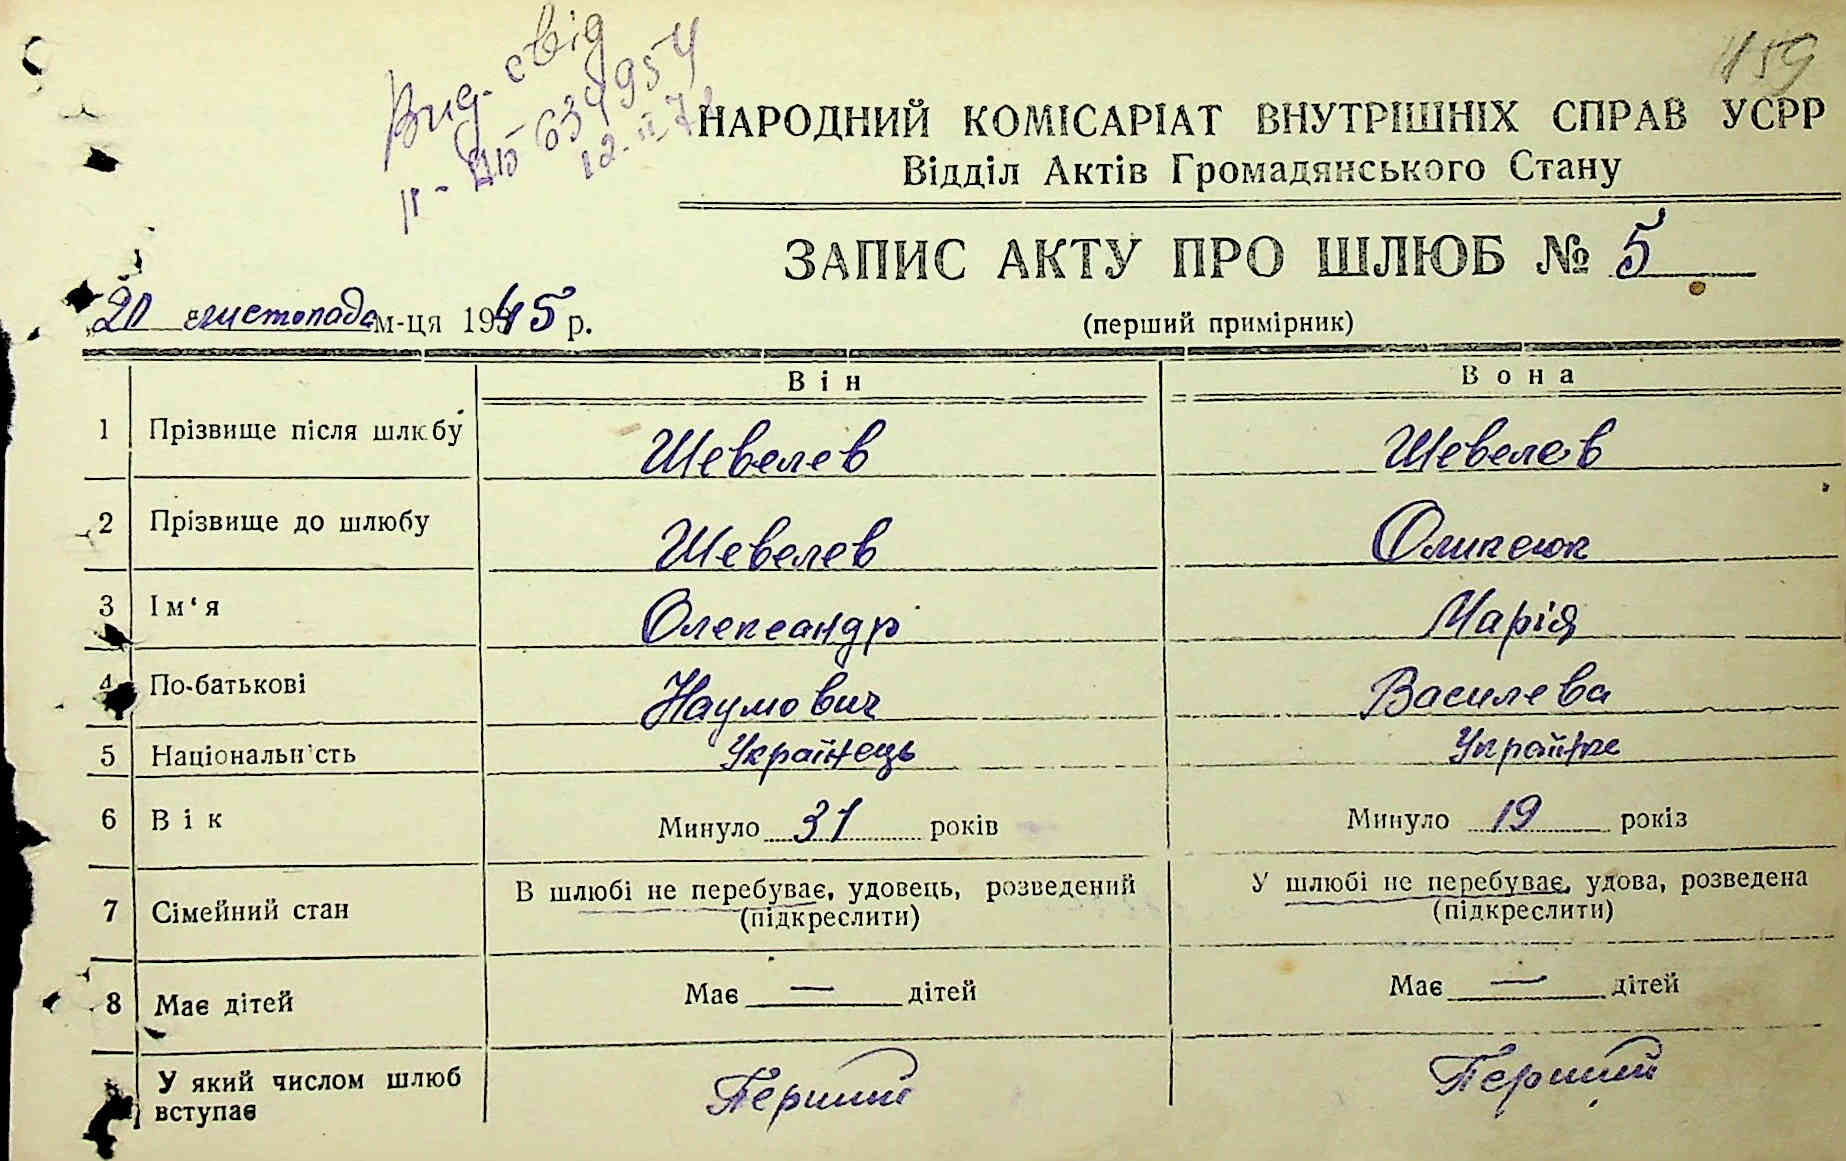 159
Вид. свід
634954
12.II.7
НАРОДНИЙ КОМІСАРІАТ ВНУТРІШНІХ СПРАВ УСРР
Відділ Актів Громадянського Стану
ЗАПИС АКТУ ПРО ШЛЮБ № 5
„20 листопада м-ця 1945 р.
(перший примірник)
Він Вона
1 Прізвище після шлюбу Шевелев Шевелев
2 Прізвище до шлюбу Шевелев
3 Ім‘я Олександр Марія
4 По-батькові Наумович Василева
5 Національність Українець Українке
6 Вік Минуло 31 років Минуло 19 років
7 Сімейний стан В шлюбі не перебуває, удовець, розведений (підкреслити) У шлюбі не перебуває, удова, розведена (підкреслити)
8 Має дітей Має — дітей Має — дітей
У який числом шлюб вступає Перший Перший